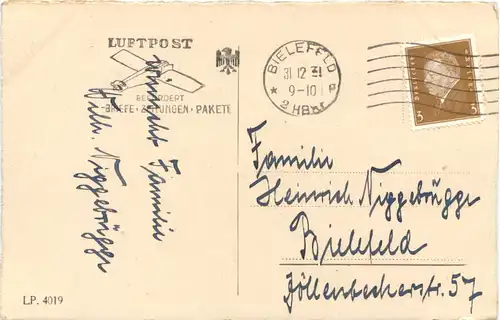 LUFTPOST
BEFÖRDERT
-BRIEFE·ZEITUNGEN·PAKETE
BIELEFELD
31.12.31
9-10
* 2 HBhf
3 3
wünscht Familie
Wilh. Niggebrügge
Familie
Heinrich Niggebrügge
Bielefeld
Jöllenbeckerstr. 57
L.P. 4019